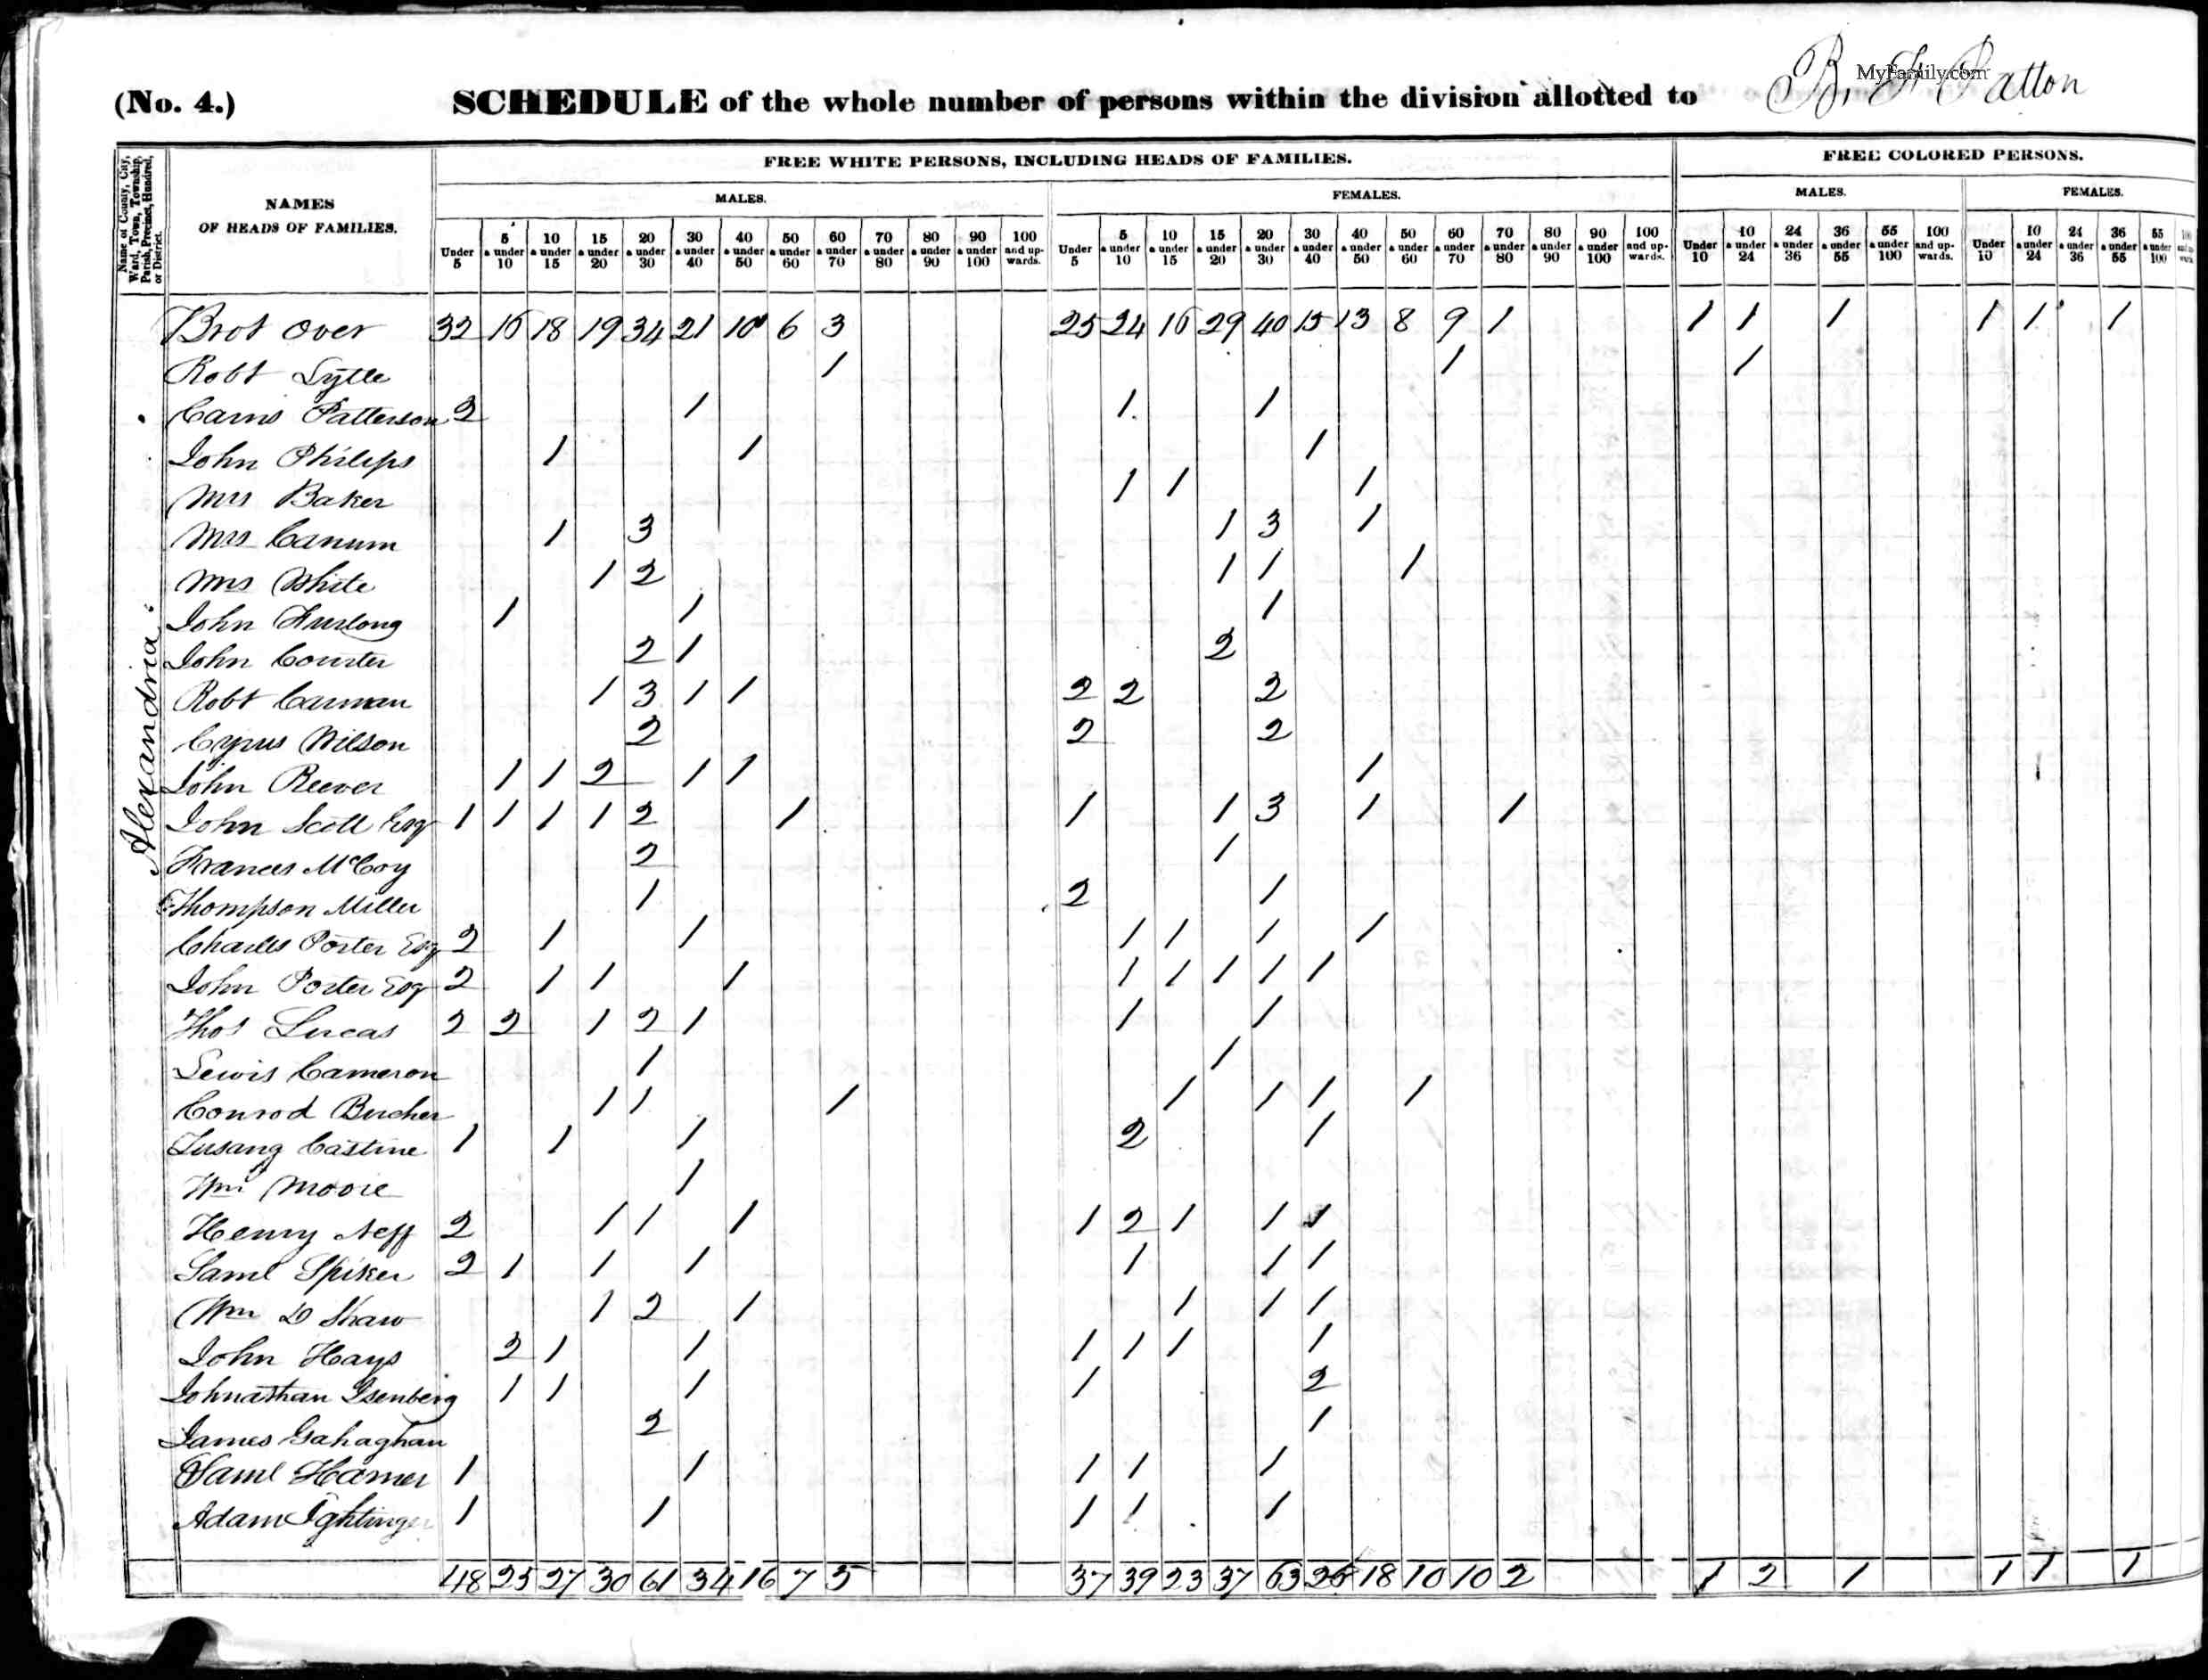 B. F. Patton
MyFamily.com
(No. 4.) SCHEDULE of the whole number of persons within the division allotted to
Name of County, City, Ward, Town, Township, Parish, Precinct, Hundred, or District.
NAMES
OF HEADS OF FAMILIES.
FREE WHITE PERSONS, INCLUDING HEADS OF FAMILIES.
FREE COLORED PERSONS.
MALES. FEMALES. MALES. FEMALES.
Under 5 | 5 & under 10 | 10 & under 15 | 15 & under 20 | 20 & under 30 | 30 & under 40 | 40 & under 50 | 50 & under 60 | 60 & under 70 | 70 & under 80 | 80 & under 90 | 90 & under 100 | 100 and upwards. | Under 5 | 5 & under 10 | 10 & under 15 | 15 & under 20 | 20 & under 30 | 30 & under 40 | 40 & under 50 | 50 & under 60 | 60 & under 70 | 70 & under 80 | 80 & under 90 | 90 & under 100 | 100 and upwards. | Under 10 | 10 & under 24 | 24 & under 36 | 36 & under 55 | 55 & under 100 | 100 and upwards. | Under 10 | 10 & under 24 | 24 & under 36 | 36 & under 55 | 55 & under 100
Alexandria
Brot over 32 16 18 19 34 21 10 6 3 25 24 16 29 40 15 13 8 9 1 1 1 1 1 1 1
Robt Lytle 1 1 1
Carns Patterson 2 1 1 1
John Philips 1 1 1
Mrs Baker 1 1 1
Mrs Canum 1 3 1 3 1
Mrs White 1 2 1 1 1
John Furlong 1 1 1
John Courter 2 1 2
Robt Carman 1 3 1 1 2 2 2
Cyrus Wilson 2 2 2
John Reever 1 1 2 1 1 1
John Scott Esq 1 1 1 1 2 1 1 1 3 1 1
Frances McCoy 2 1
Thompson Miller 1 2 1
Charles Porter Esq 2 1 1 1 1 1 1
John Porter Esq 2 1 1 1 1 1 1 1 1
Thos Lucas 2 2 1 2 1 1 1
Lewis Cameron 1 1
Conrod Bucher 1 1 1 1 1 1 1
Susang Castine 1 1 1 2 1
Wm Moore 1
Henry Neff 2 1 1 1 1 2 1 1 1
Saml Spiker 2 1 1 1 1 1 1
Wm D Shaw 1 2 1 1 1 1
John Hays 2 1 1 1 1 1 1
Johnathan Isenberg 1 1 1 1 2
James Gahaghan 2 1
Saml Harner 1 1 1 1 1
Adam 1 1 1 1 1
48 25 27 30 61 34 16 7 5 37 39 23 37 63 26 18 10 10 2 1 2 1 1 1 1